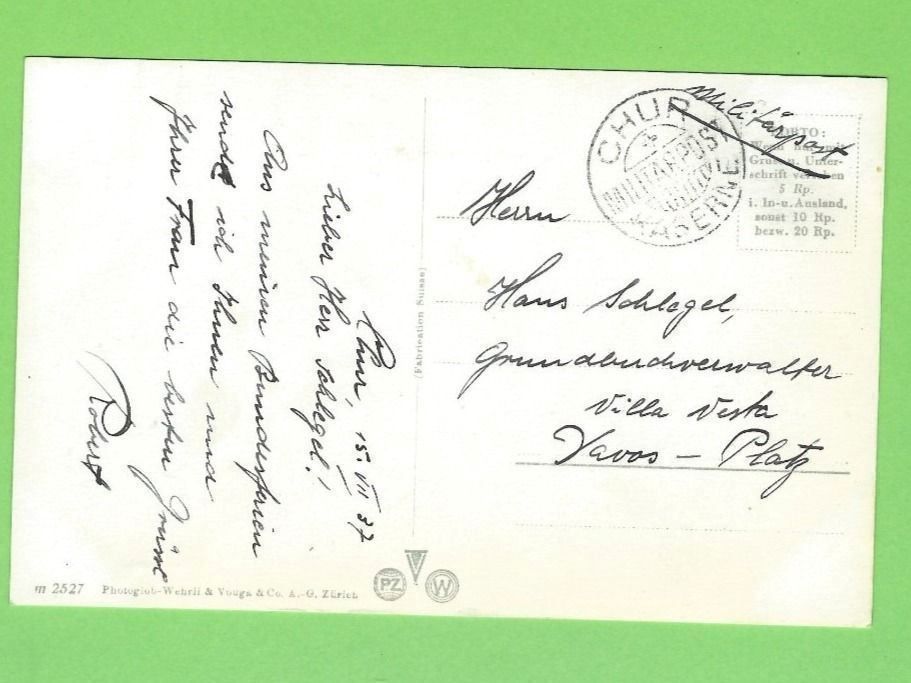 Chur, 15. VII 37
Lieber Herr Schlegel!
Aus meinen Bundesferien
sende ich Ihnen und
Ihrer Frau die besten Grüsse
Robert
(Fabrication Suisse)
m 2527 Photoglob-Wehrli & Vouga & Co. A.-G. Zürich
PZ
W
CHUR 1
MILITÄRPOST
KASERNE
Militärpost
PORTO:
Wenn nur mit
Gruss u. Unter-
schrift versehen
5 Rp.
i. In-u. Ausland,
sonst 10 Rp.
bezw. 20 Rp.
Herrn
Hans Schlegel,
Grundbuchverwalter
Villa Vesta
Davos – Platz